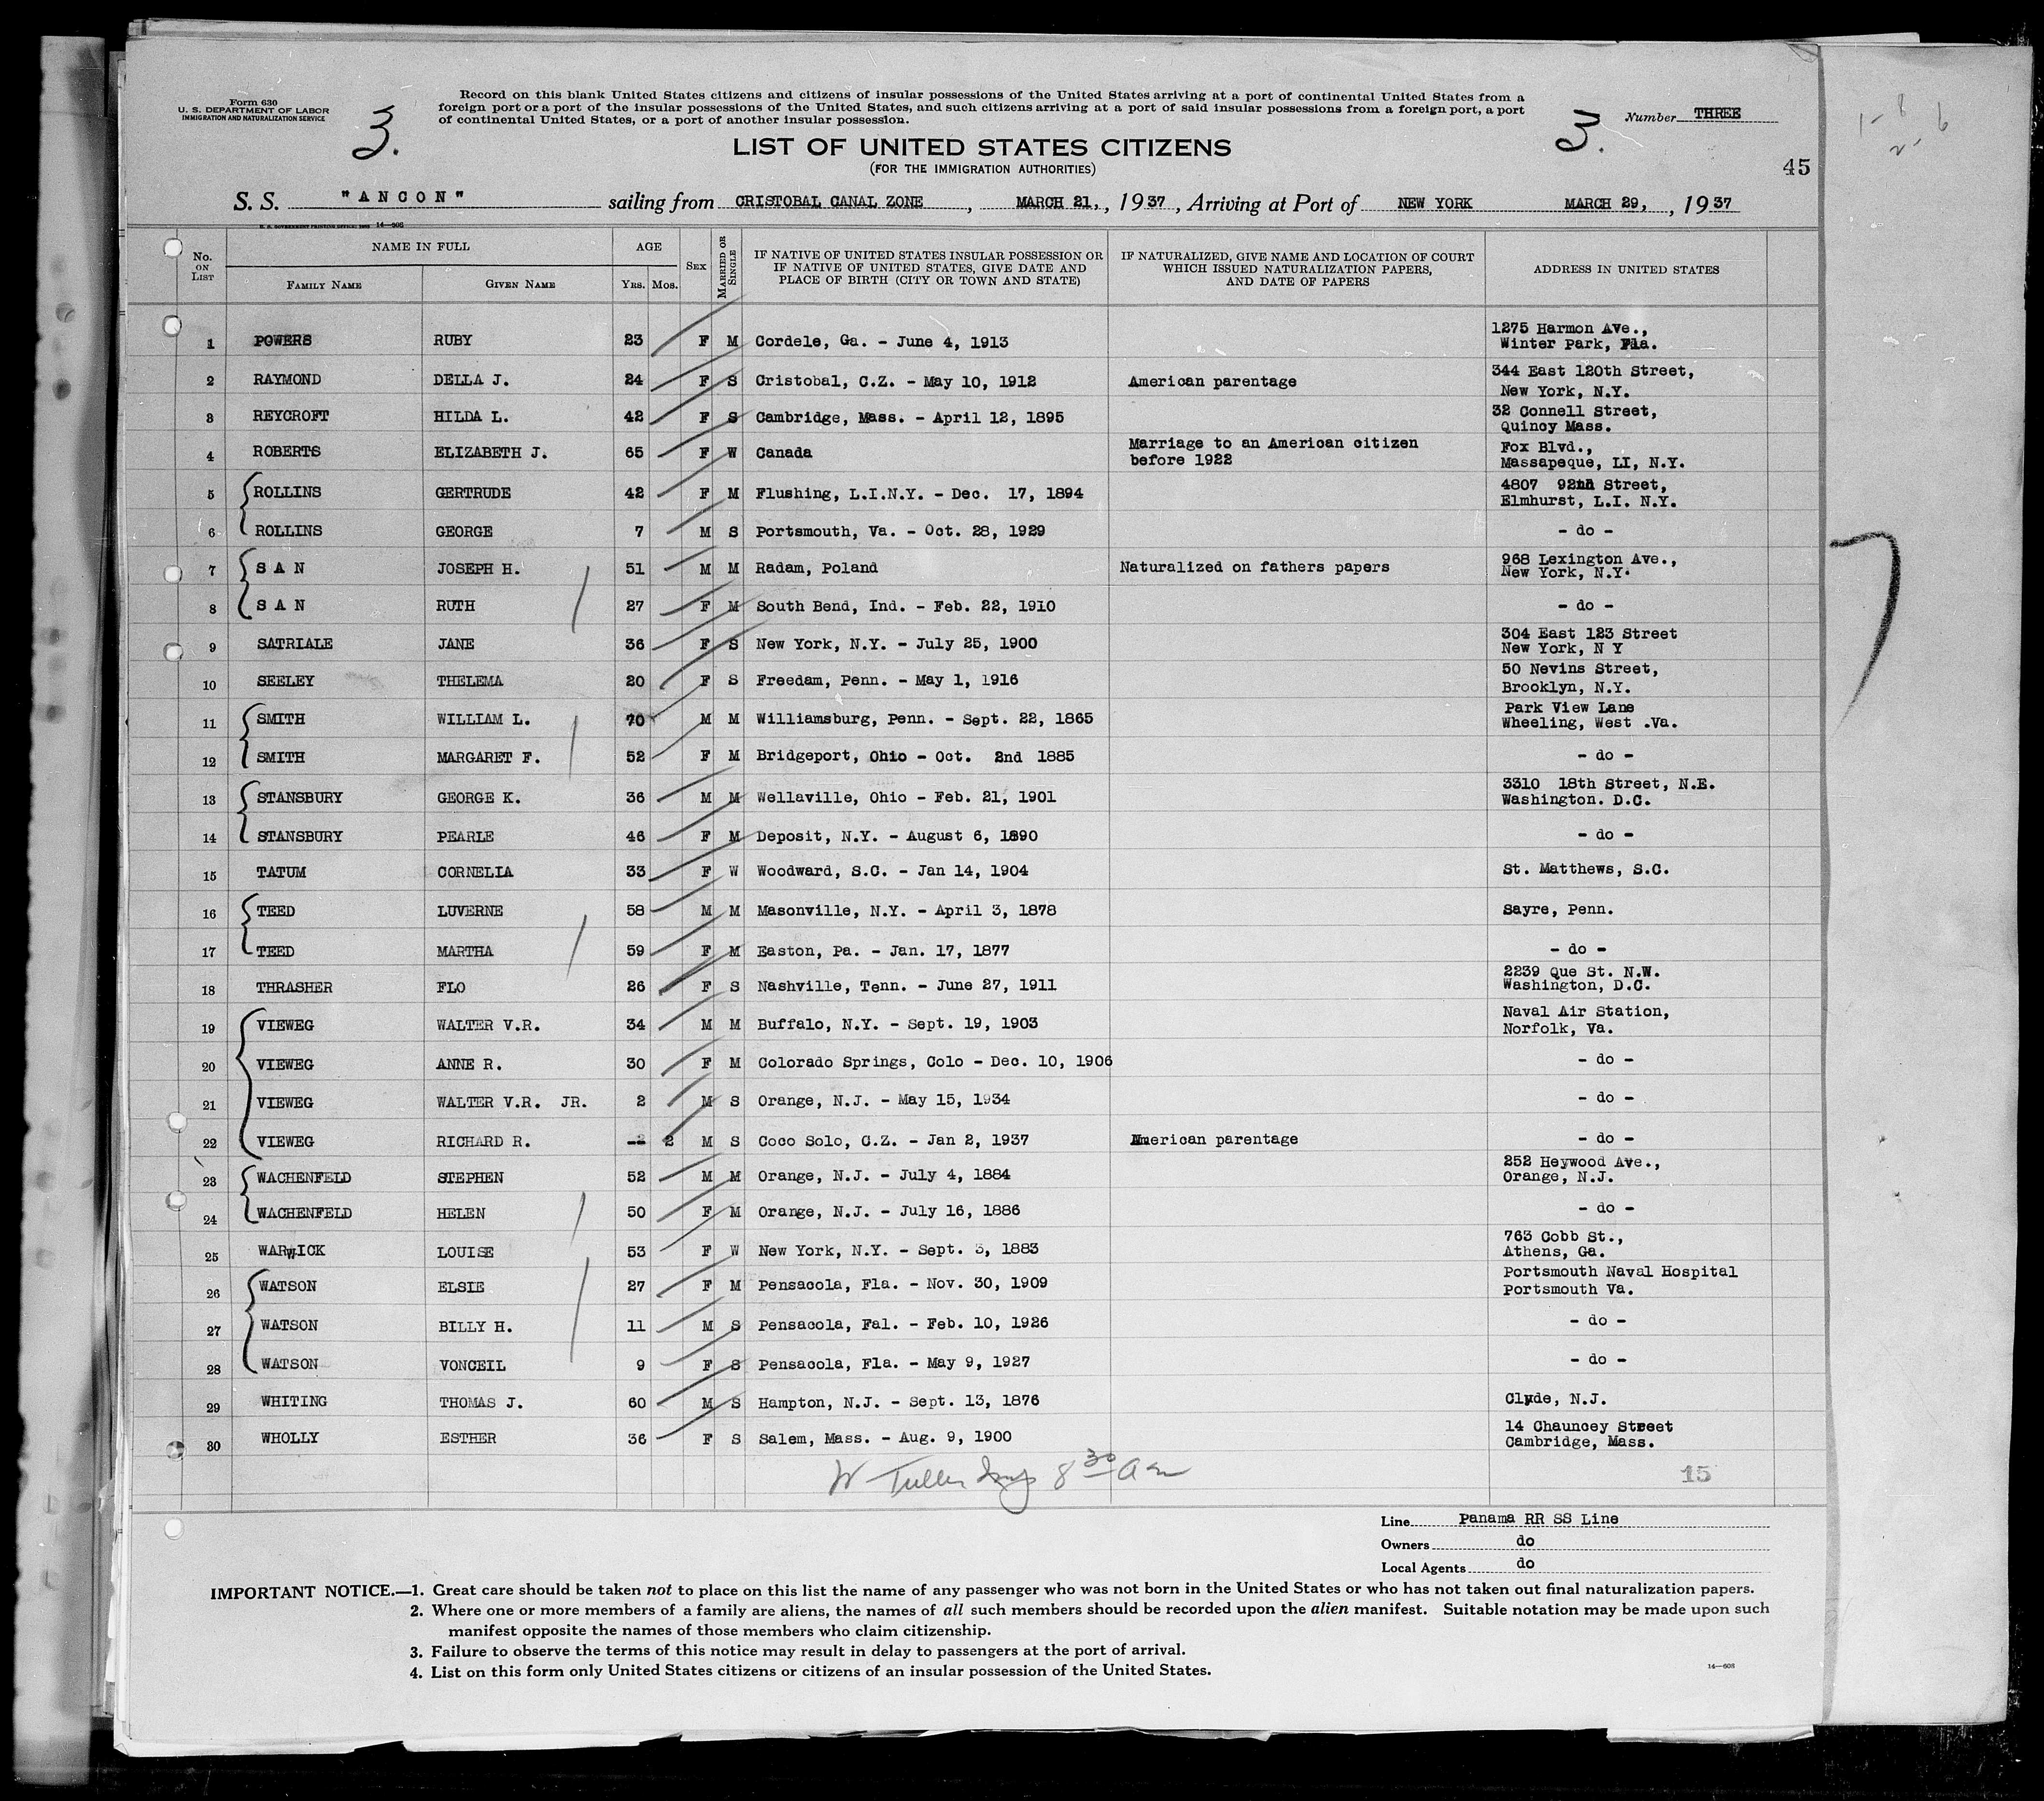 Form 630
U. S. DEPARTMENT OF LABOR
IMMIGRATION AND NATURALIZATION SERVICE
3.
Record on this blank United States citizens and citizens of insular possessions of the United States arriving at a port of continental United States from a
foreign port or a port of the insular possessions of the United States, and such citizens arriving at a port of said insular possessions from a foreign port, a port
of continental United States, or a port of another insular possession.
3.
Number THREE
LIST OF UNITED STATES CITIZENS
(FOR THE IMMIGRATION AUTHORITIES)
45
S. S. "ANCON" sailing from CRISTOBAL CANAL ZONE, MARCH 21,, 1937, Arriving at Port of NEW YORK MARCH 29,, 1937
14—608
No. ON LIST NAME IN FULL FAMILY NAME GIVEN NAME AGE YRS. MOS. SEX MARRIED OR SINGLE
IF NATIVE OF UNITED STATES INSULAR POSSESSION OR IF NATIVE OF UNITED STATES, GIVE DATE AND PLACE OF BIRTH (CITY OR TOWN AND STATE)
IF NATURALIZED, GIVE NAME AND LOCATION OF COURT WHICH ISSUED NATURALIZATION PAPERS, AND DATE OF PAPERS
ADDRESS IN UNITED STATES
1 POWERS RUBY 23 F M Cordele, Ga. - June 4, 1913 1275 Harmon Ave., Winter Park, Fla.
2 RAYMOND DELLA J. 24 F S Cristobal, C.Z. - May 10, 1912 American parentage 344 East 120th Street, New York, N.Y.
3 REYCROFT HILDA L. 42 F S Cambridge, Mass. - April 12, 1895 32 Connell Street, Quincy Mass.
4 ROBERTS ELIZABETH J. 65 F W Canada Marriage to an American citizen before 1922 Fox Blvd., Massapeque, LI, N.Y.
5 ROLLINS GERTRUDE 42 F M Flushing, L.I.N.Y. - Dec. 17, 1894 4807 92nd Street, Elmhurst, L.I. N.Y.
6 ROLLINS GEORGE 7 M S Portsmouth, Va. - Oct. 28, 1929 - do -
7 S A N JOSEPH H. 51 M M Radam, Poland Naturalized on fathers papers 968 Lexington Ave., New York, N.Y.
8 S A N RUTH 27 F M South Bend, Ind. - Feb. 22, 1910 - do -
9 SATRIALE JANE 36 F S New York, N.Y. - July 25, 1900 304 East 123 Street New York, N Y
10 SEELEY THELEMA 20 F S Freedam, Penn. - May 1, 1916 50 Nevins Street, Brooklyn, N.Y.
11 SMITH WILLIAM L. 70 M M Williamsburg, Penn. - Sept. 22, 1865 Park View Lane Wheeling, West .Va.
12 SMITH MARGARET F. 52 F M Bridgeport, Ohio - Oct. 2nd 1885 - do -
13 STANSBURY GEORGE K. 36 M M Wellaville, Ohio - Feb. 21, 1901 3310 18th Street, N.E. Washington. D.C.
14 STANSBURY PEARLE 46 F M Deposit, N.Y. - August 6, 1890 - do -
15 TATUM CORNELIA 33 F W Woodward, S.C. - Jan 14, 1904 St. Matthews, S.C.
16 TEED LUVERNE 58 M M Masonville, N.Y. - April 3, 1878 Sayre, Penn.
17 TEED MARTHA 59 F M Easton, Pa. - Jan. 17, 1877 - do -
18 THRASHER FLO 26 F S Nashville, Tenn. - June 27, 1911 2239 Que St. N.W. Washington, D.C.
19 VIEWEG WALTER V.R. 34 M M Buffalo, N.Y. - Sept. 19, 1903 Naval Air Station, Norfolk, Va.
20 VIEWEG ANNE R. 30 F M Colorado Springs, Colo - Dec. 10, 1906 - do -
21 VIEWEG WALTER V.R. JR. 2 M S Orange, N.J. - May 15, 1934 - do -
22 VIEWEG RICHARD R. -- 2 M S Coco Solo, C.Z. - Jan 2, 1937 American parentage - do -
23 WACHENFELD STEPHEN 52 M M Orange, N.J. - July 4, 1884 252 Heywood Ave., Orange, N.J.
24 WACHENFELD HELEN 50 F M Orange, N.J. - July 16, 1886 - do -
25 WARWICK LOUISE 53 F W New York, N.Y. - Sept. 3, 1883 763 Cobb St., Athens, Ga.
26 WATSON ELSIE 27 F M Pensacola, Fla. - Nov. 30, 1909 Portsmouth Naval Hospital Portsmouth Va.
27 WATSON BILLY H. 11 M S Pensacola, Fal. - Feb. 10, 1926 - do -
28 WATSON VONCEIL 9 F S Pensacola, Fla. - May 9, 1927 - do -
29 WHITING THOMAS J. 60 M S Hampton, N.J. - Sept. 13, 1876 Clyde, N.J.
30 WHOLLY ESTHER 36 F S Salem, Mass. - Aug. 9, 1900 14 Chauncey Street Cambridge, Mass.
8 30 am
15
Line Panama RR SS Line
Owners do
Local Agents do
IMPORTANT NOTICE.—1. Great care should be taken not to place on this list the name of any passenger who was not born in the United States or who has not taken out final naturalization papers.
2. Where one or more members of a family are aliens, the names of all such members should be recorded upon the alien manifest. Suitable notation may be made upon such
manifest opposite the names of those members who claim citizenship.
3. Failure to observe the terms of this notice may result in delay to passengers at the port of arrival.
4. List on this form only United States citizens or citizens of an insular possession of the United States.
14—608